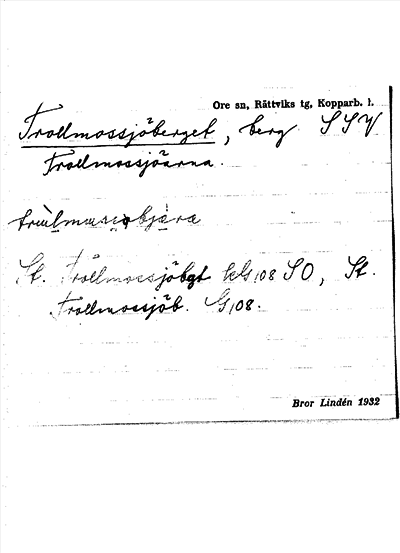 Ore sn, Rättviks tg, Kopparb. l.
Trollmossjöberget, berg SSV
Trollmossjöarna.
St. Trollmossjöbgt kG108 SO, St.
Trollmossjöb. G108.
Bror Lindén 1932